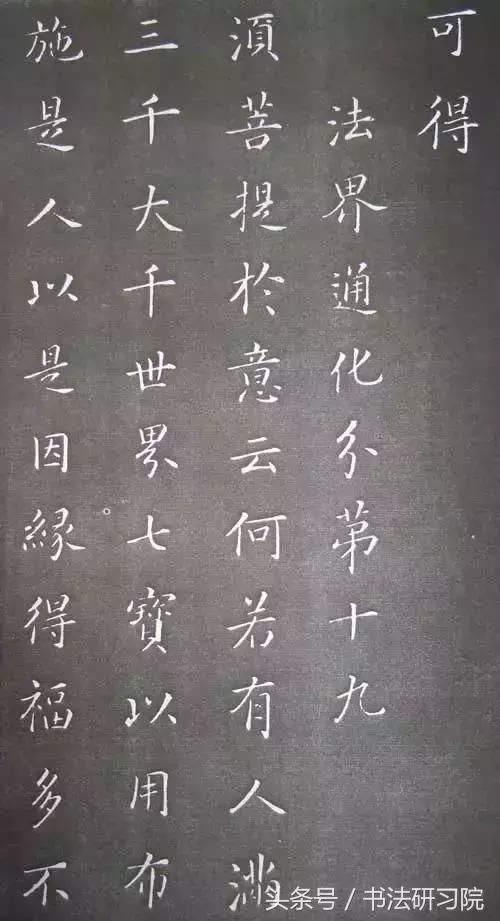 可得
法界通化分第十九
須菩提於意云何若有人滿
三千大千世界七寶以用布
施是人以是因緣得福多不
头条号/书法研习院